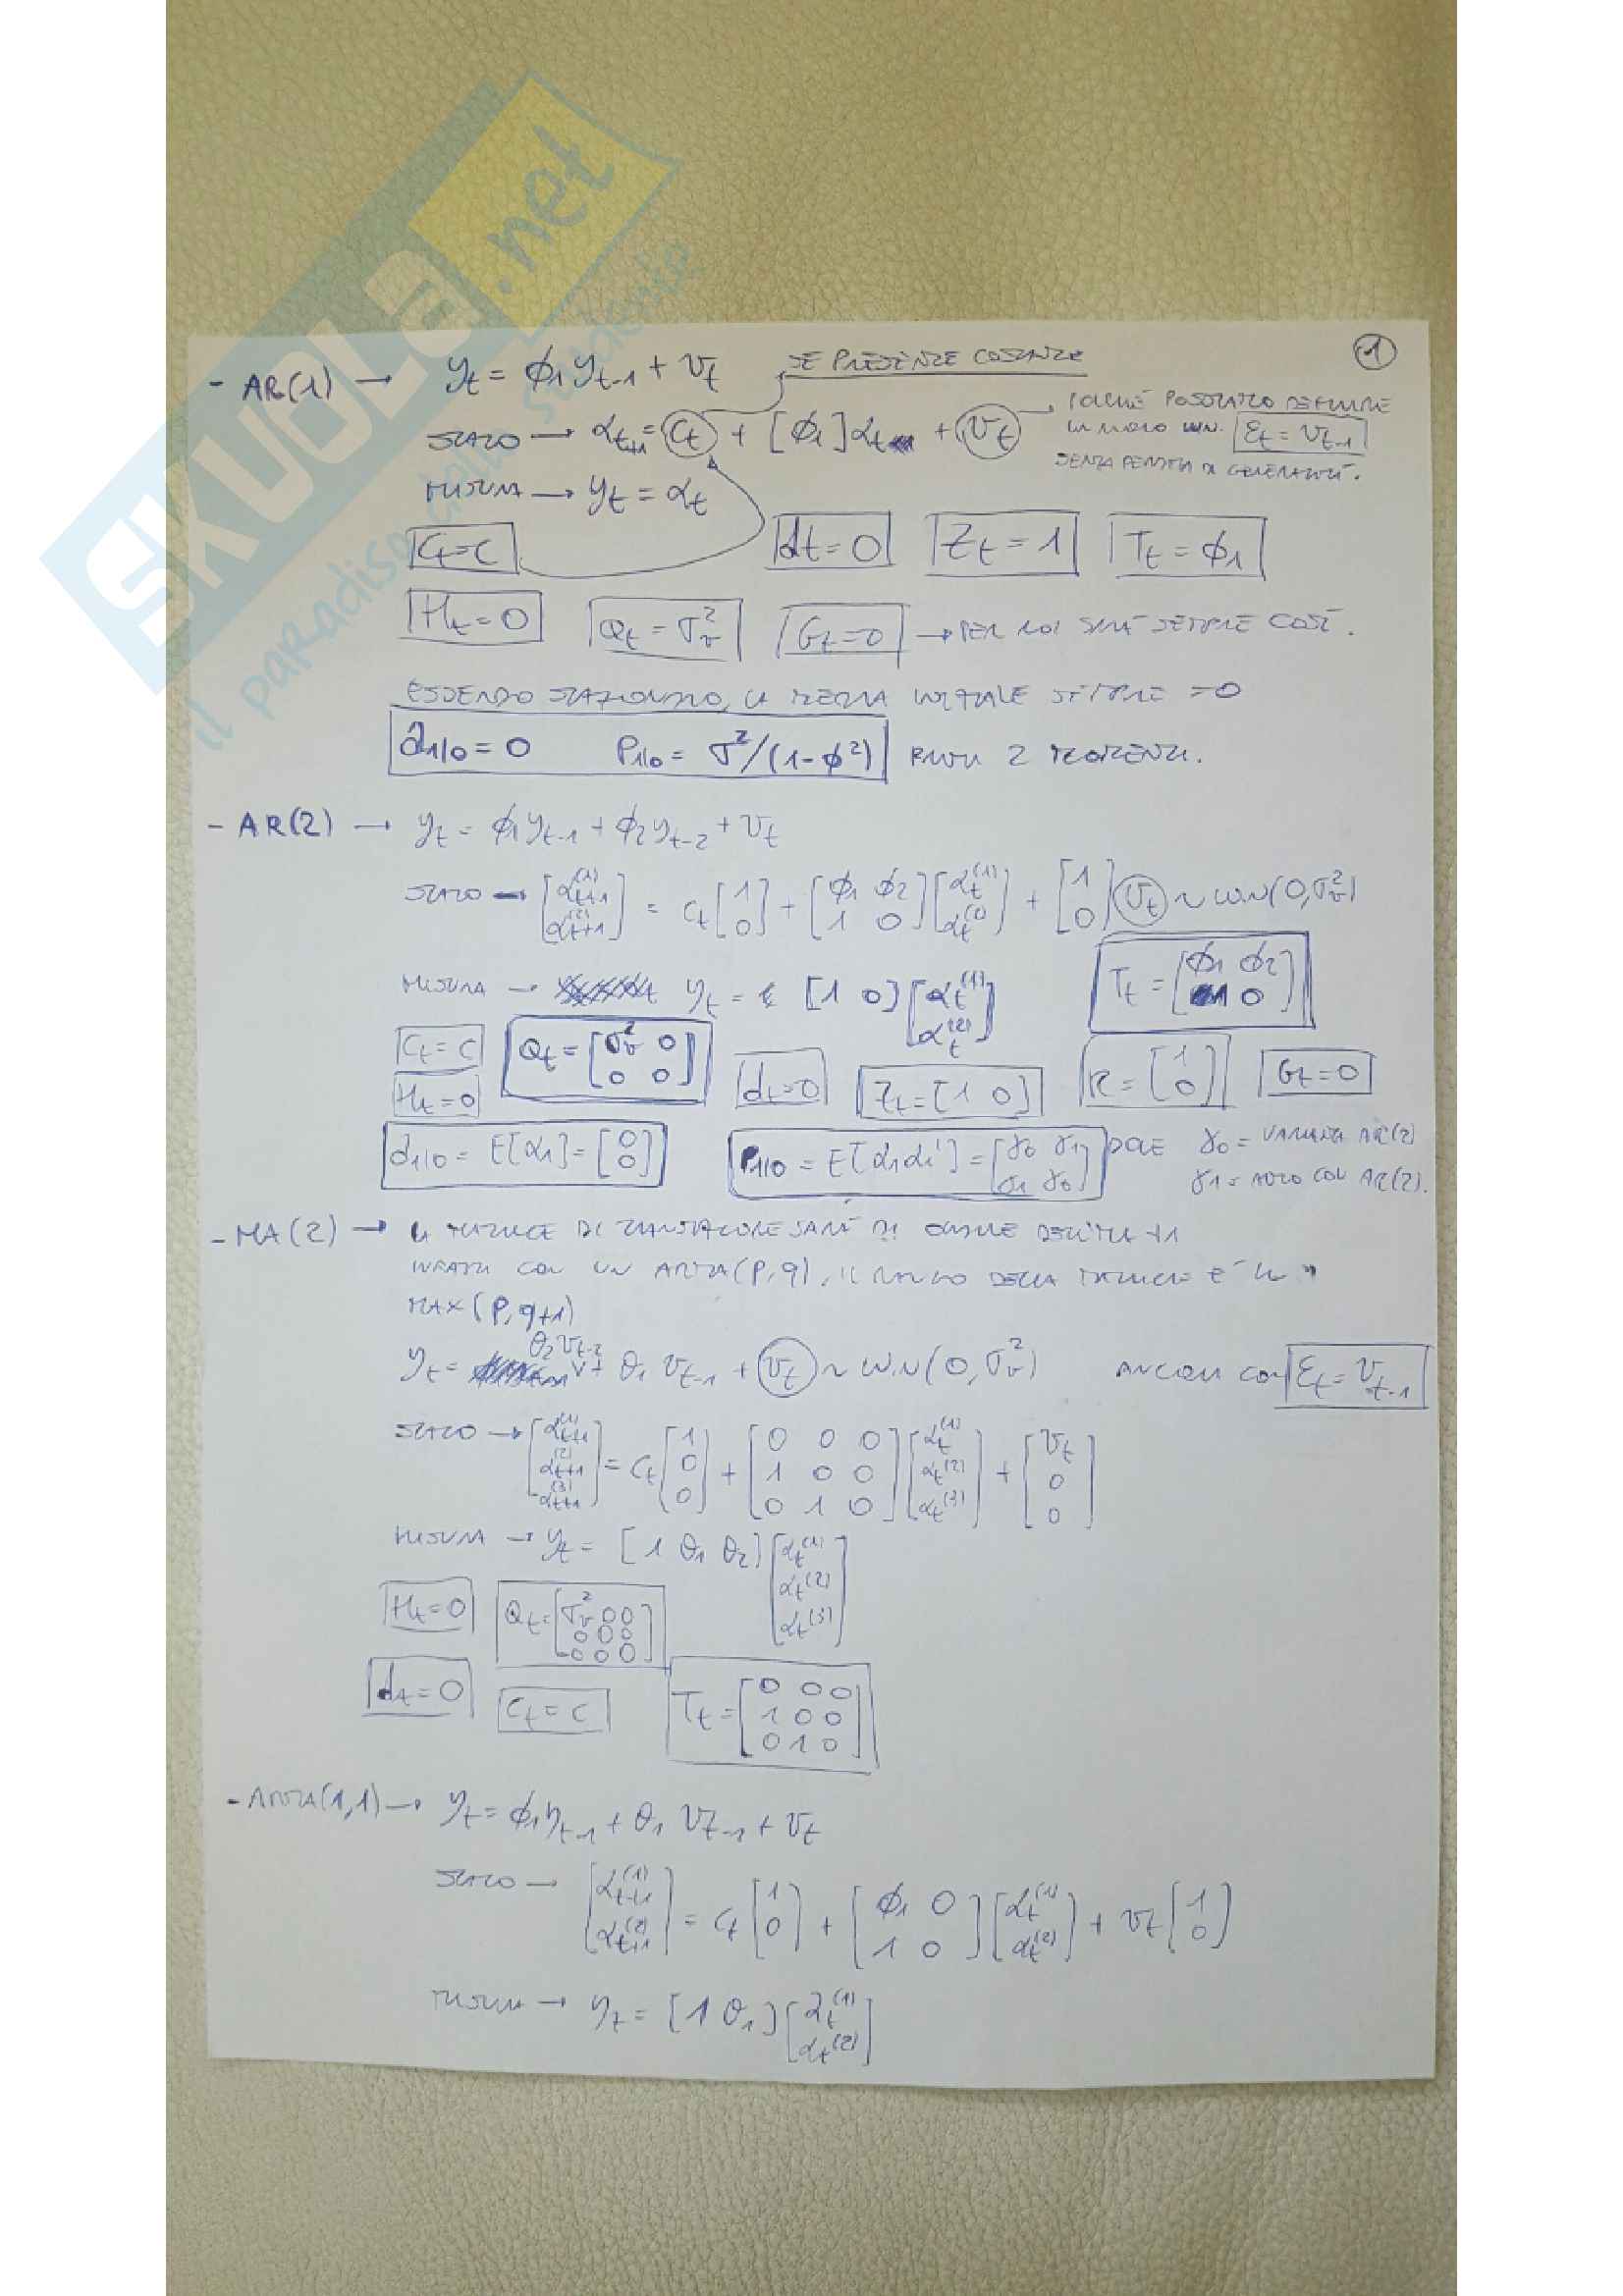 SKUOLA.net
il paradiso dello studente
1
- AR(1) → yt = ϕ1 yt-1 + vt
SE PRESENTE COSTANTE
STATO → αt+1 = ct + [ϕ1] αt + vt
POICHÉ POSSIAMO DEFINIRE
UN NUOVO WN. εt = vt-1
SENZA PERDITA DI GENERALITÀ.
MISURA → yt = αt
ct = c dt = 0 Zt = 1 Tt = ϕ1
Ht = 0 Qt = σ²v Gt = 0 → PER NOI SARÀ SEMPRE COSÌ.
ESSENDO STAZIONARIO, LA MEDIA INIZIALE SEMPRE = 0
â1|0 = 0 P1|0 = σ²/(1-ϕ²) PRIMI 2 MOMENTI.
- AR(2) → yt = ϕ1 yt-1 + ϕ2 yt-2 + vt
STATO → [αt+1(1) ; αt+1(2)] = ct [1 ; 0] + [ϕ1 ϕ2 ; 1 0] [αt(1) ; αt(2)] + [1 ; 0] vt ~ WN(0, σ²v)
MISURA → yt = [1 0] [αt(1) ; αt(2)]
Tt = [ϕ1 ϕ2 ; 1 0]
ct = c Qt = [σ²v 0 ; 0 0] dt = 0 Zt = [1 0] R = [1 ; 0] Gt = 0
Ht = 0
â1|0 = E[α1] = [0 ; 0] P1|0 = E[α1α1'] = [γ0 γ1 ; γ1 γ0] DOVE γ0 = VARIANZA AR(2)
γ1 = AUTO COV AR(2).
- MA(2) → LA MATRICE DI TRANSIZIONE SARÀ DI ORDINE DELL'MA +1
INFATTI CON UN ARMA(P,q), IL RANGO DELLA MATRICE È IL
MAX(P, q+1)
yt = θ2 vt-2 + θ1 vt-1 + vt ~ WN(0, σ²v) ANCORA CON εt = vt-1
STATO → [αt+1(1) ; αt+1(2) ; αt+1(3)] = ct [1 ; 0 ; 0] + [0 0 0 ; 1 0 0 ; 0 1 0] [αt(1) ; αt(2) ; αt(3)] + [vt ; 0 ; 0]
MISURA → yt = [1 θ1 θ2] [αt(1) ; αt(2) ; αt(3)]
Ht = 0 Qt = [σ²v 0 0 ; 0 0 0 ; 0 0 0]
dt = 0 ct = c Tt = [0 0 0 ; 1 0 0 ; 0 1 0]
- ARMA(1,1) → yt = ϕ1 yt-1 + θ1 vt-1 + vt
STATO → [αt+1(1) ; αt+1(2)] = ct [1 ; 0] + [ϕ1 0 ; 1 0] [αt(1) ; αt(2)] + vt [1 ; 0]
MISURA → yt = [1 θ1] [αt(1) ; αt(2)]